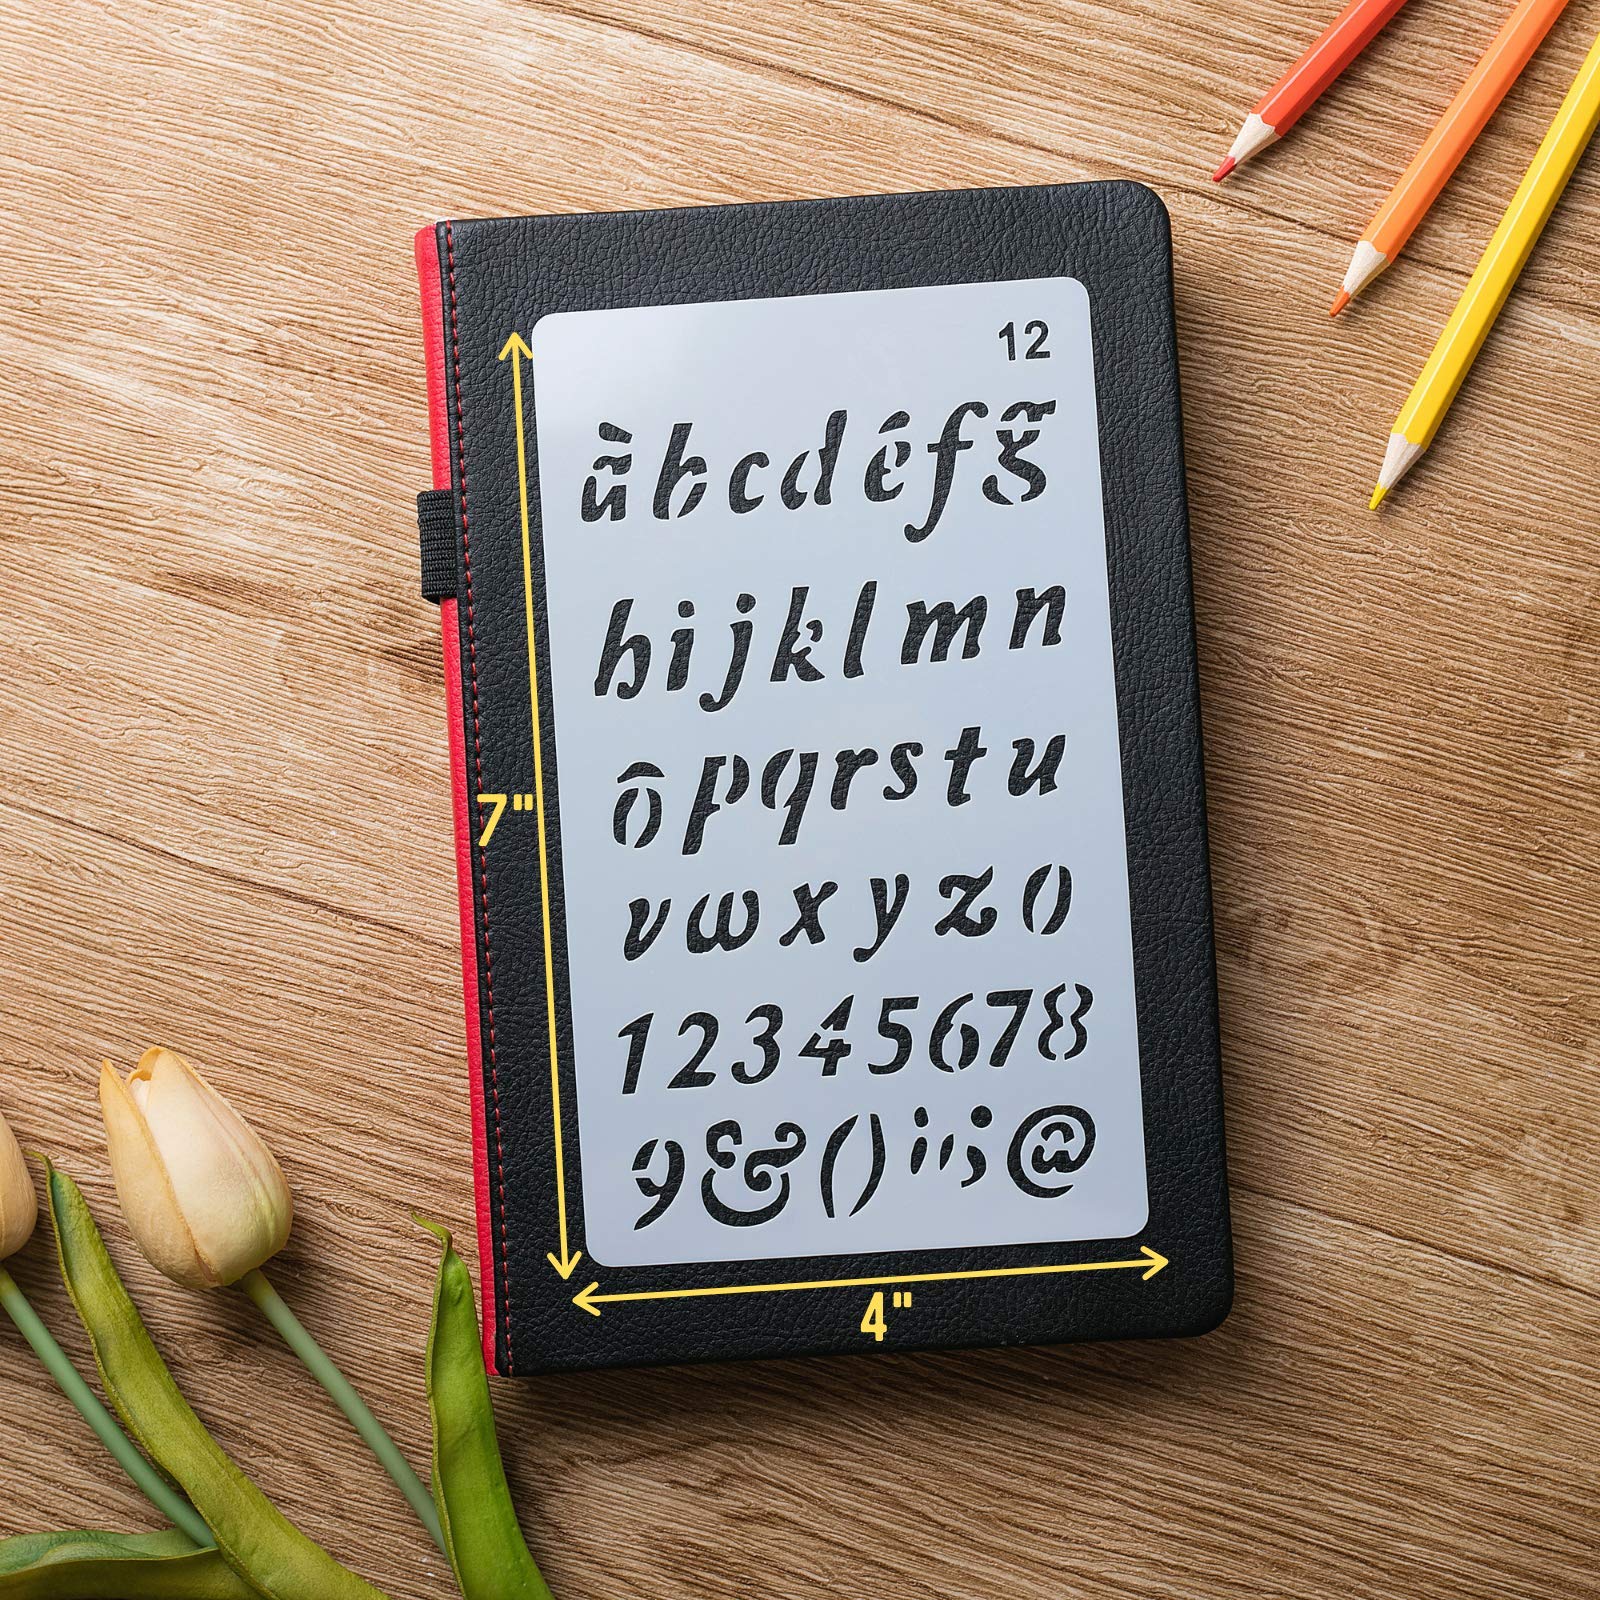 12
à b c d é f g̃
h i j k l m n
ô p q r s t u
v w x y z 0
7"
1 2 3 4 5 6 7 8
9 & ( ) i ' ' ; @
4"